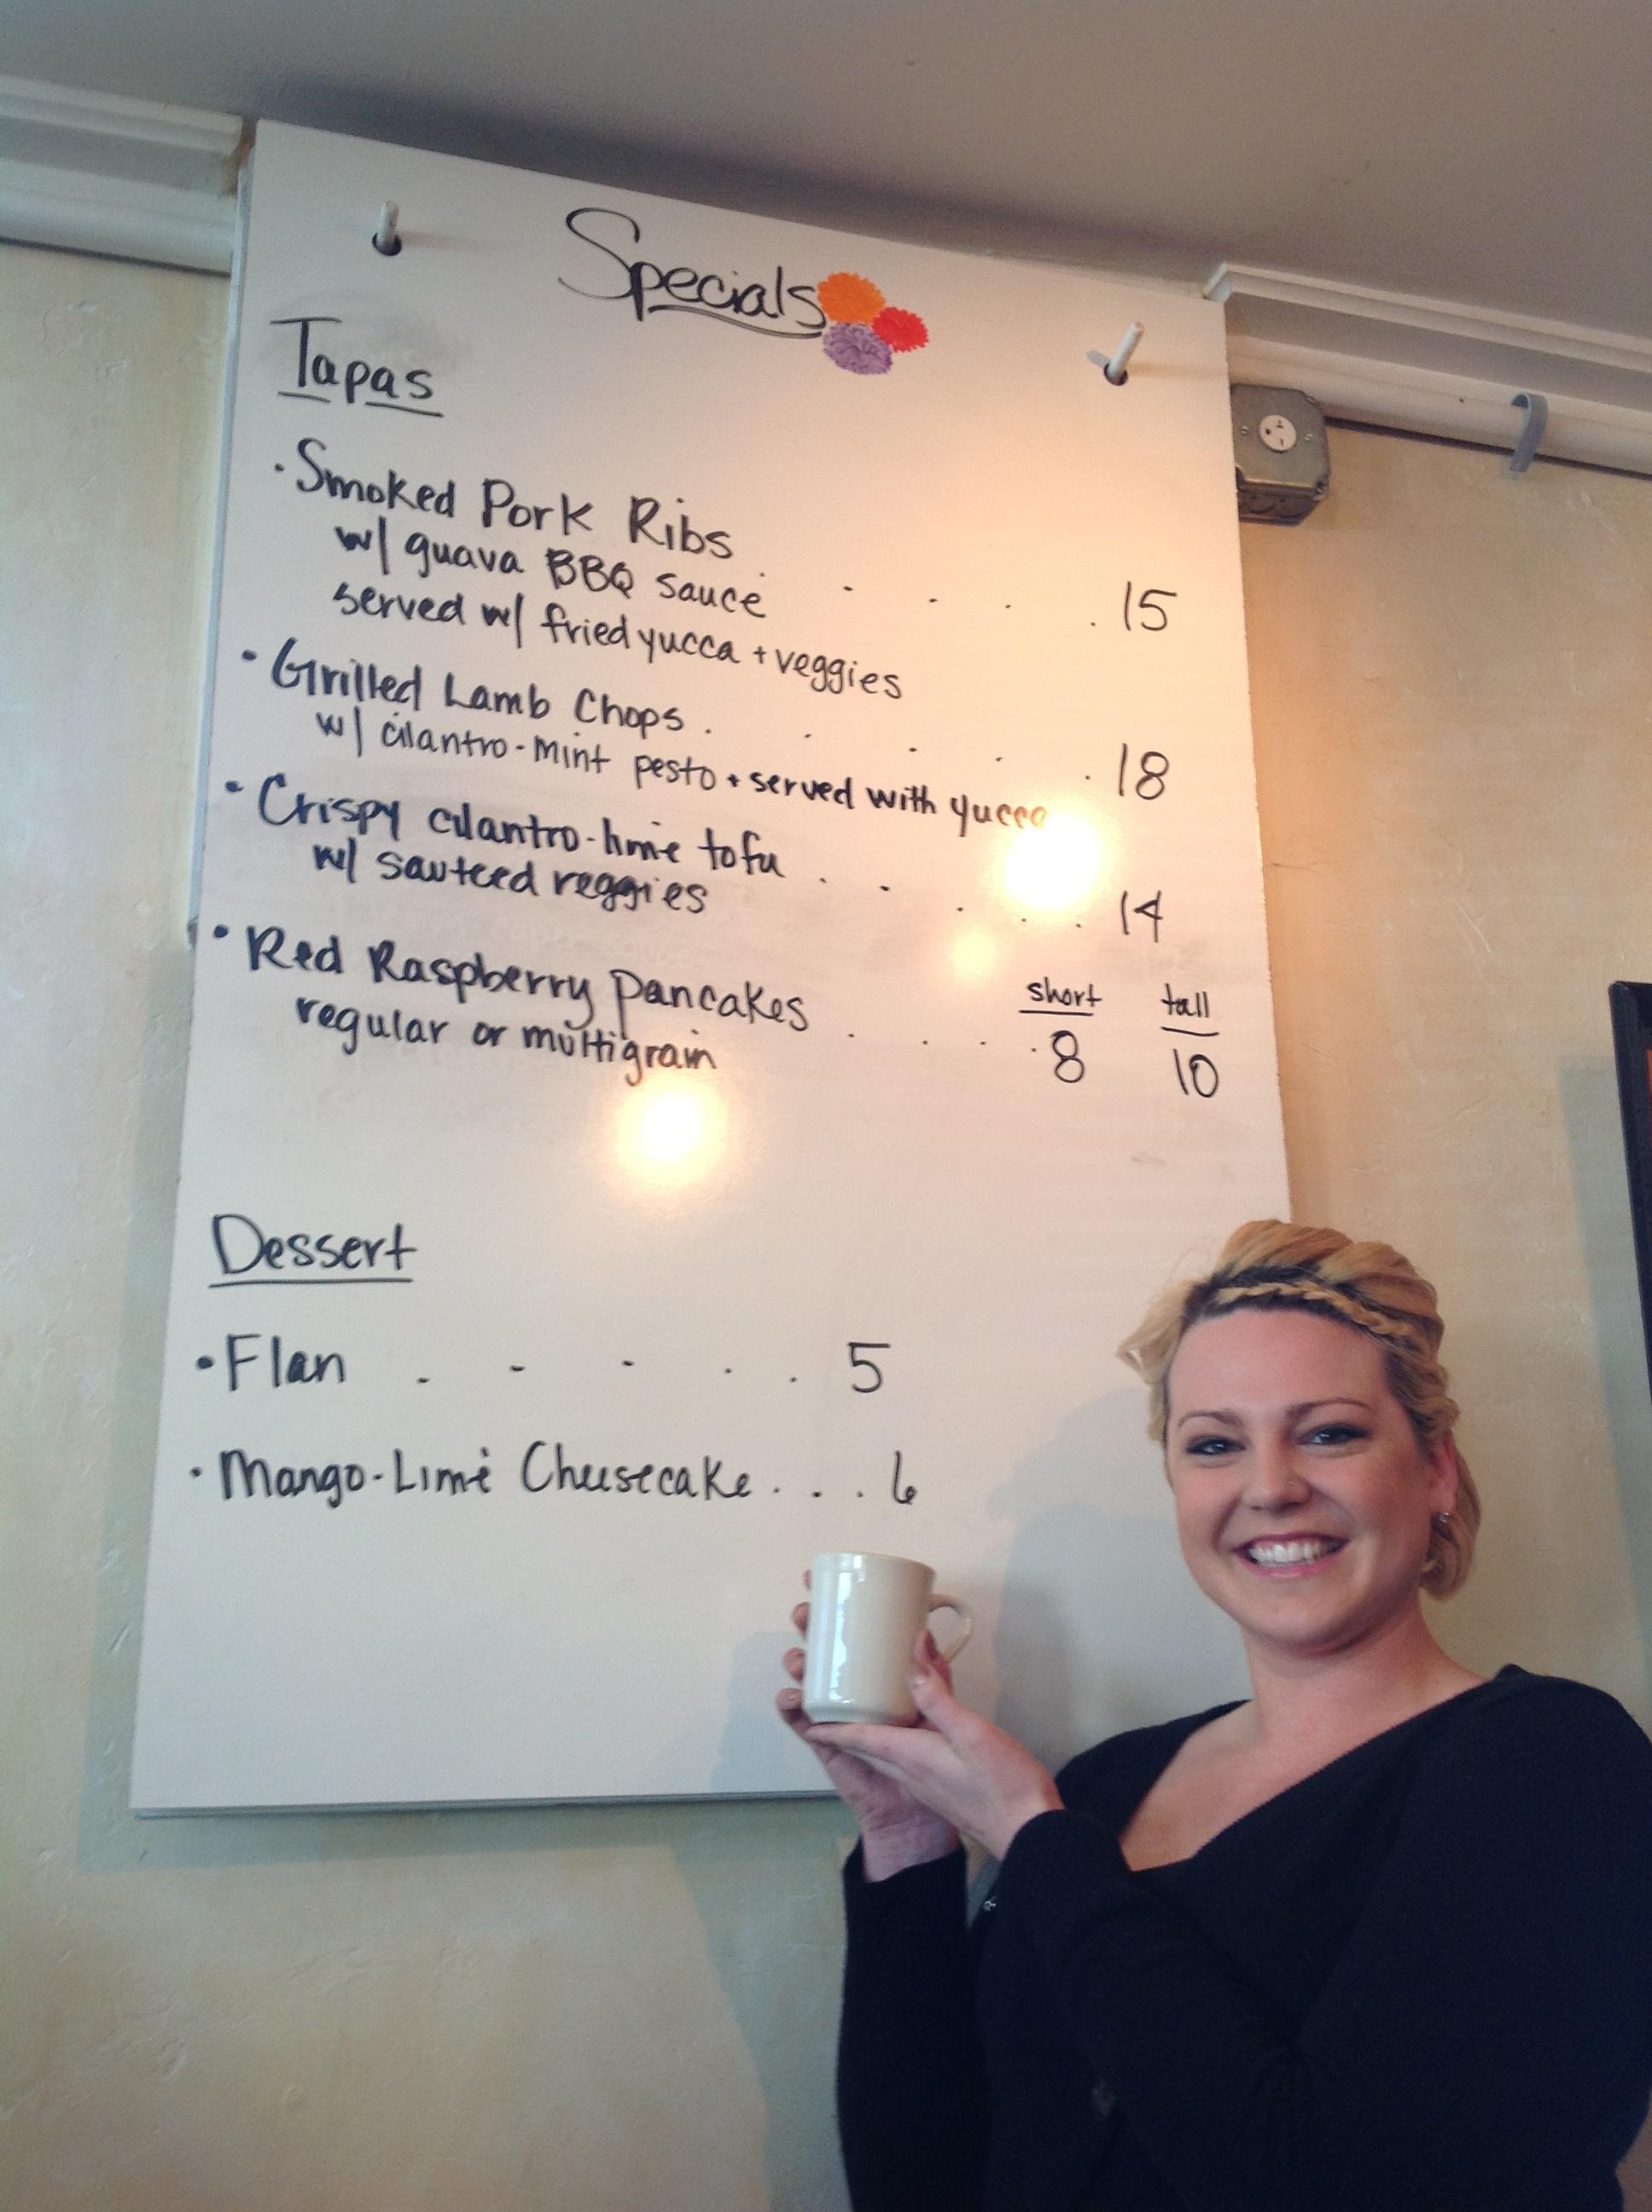 Specials
Tapas
• Smoked Pork Ribs
w/ guava BBQ sauce . . . . . 15
served w/ fried yucca + veggies
• Grilled Lamb Chops . . . . . 18
w/ cilantro-mint pesto + served with yucca
• Crispy cilantro-lime tofu . . . . . 14
w/ sauteed veggies
short tall
• Red Raspberry Pancakes . . . . 8 10
regular or multigrain
Dessert
• Flan . - - . . 5
• Mango-Lime Cheesecake . . . 6